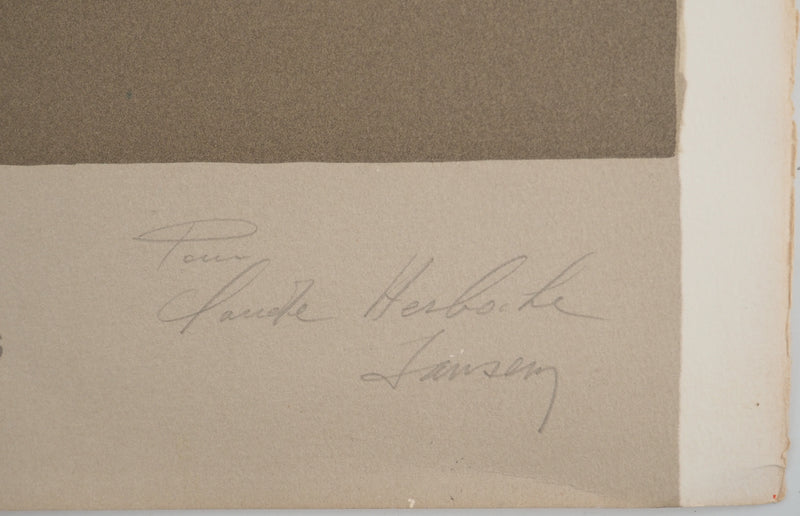 Pour
Claude Herboche
Jansem